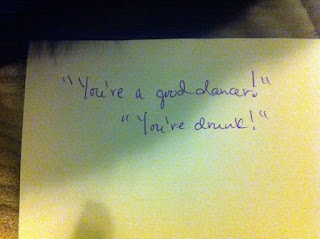 "You're a good dancer!"
"You're drunk!"